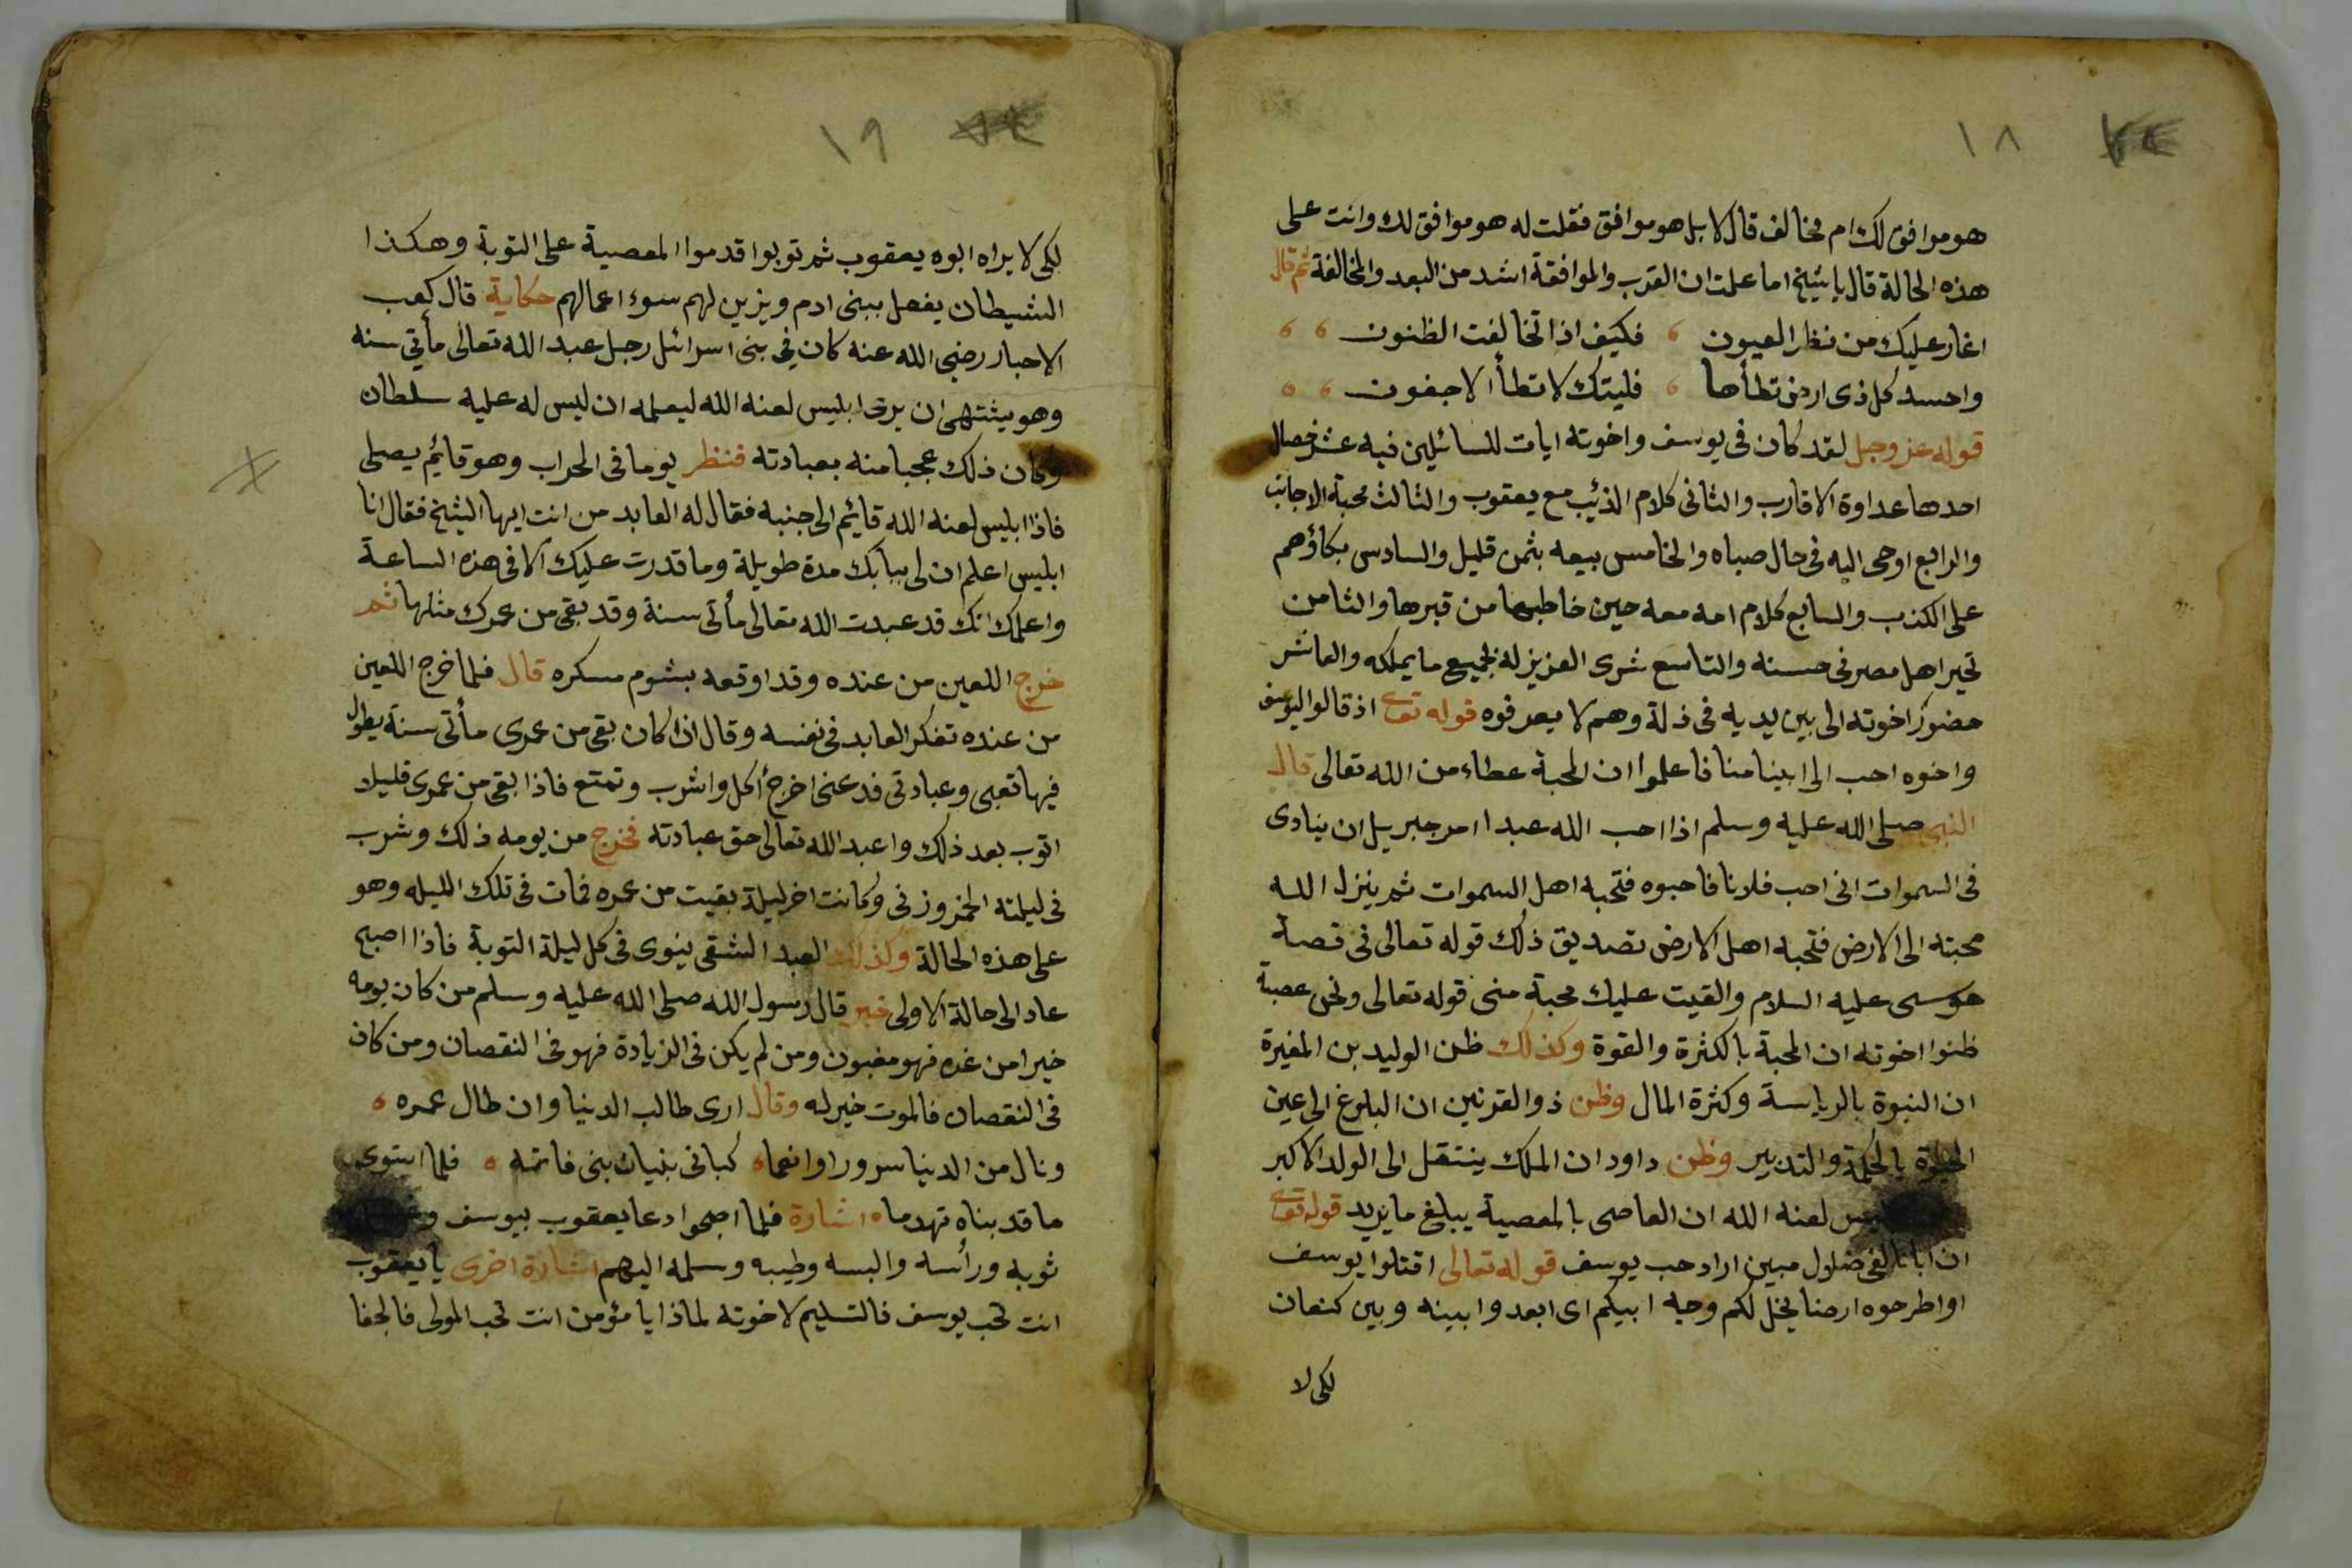 ١٨
هو موافق لك ام مخالف قال لا بل هو موافق فقلت له هو موافق لك وانت على
هذه الحالة قال يا شيخ اما علمت ان القرب والموافقة اشد من البعد والمخالفة ثم قال
اغار عليك من نظر العيون ، فكيف اذا تخالفت الظنون ، ،
واحسد كل ذى ارض تطأها ، فليتك لا تطأ الا جفون ، ،
قوله عز وجل لقد كان فى يوسف واخوته ايات للسائلين فيه عشر خصال
احدها عداوة الاقارب والثانى كلام الذئب مع يعقوب والثالث محبة الاجانب
والرابع اوحى اليه فى حال صباه والخامس بيعه بثمن قليل والسادس بكاؤهم
على الكذب والسابع كلام امه معه حين خاطبها من قبرها والثامن
تحير اهل مصر فى حسنه والتاسع شرى العزيز له بجميع ما يملكه والعاشر
حضور اخوته الى بين يديه فى ذلة وهم لا يعرفوه قوله تعالى اذ قالوا ليوسف
واخوه احب الى ابينا منا فاعلموا ان المحبة عطاء من الله تعالى قال
النبى صلى الله عليه وسلم اذا احب الله عبدا امر جبريل ان ينادى
فى السموات انى احب فلانا فاحبوه فتحبه اهل السموات ثم ينزل الله
محبته الى الارض فتحبه اهل الارض تصديق ذلك قوله تعالى فى قصة
موسى عليه السلام والقيت عليك محبة منى قوله تعالى ونحن عصبة
ظنوا اخوته ان المحبة بالكثرة والقوة وكذلك ظن الوليد بن المغيرة
ان النبوة بالرياسة وكثرة المال وظن ذو القرنين ان البلوغ الى عين
الحيوة بالحكمة والتدبير وظن داود ان الملك ينتقل الى الولد الاكبر
لعنه الله ان العاصى بالمعصية يبلغ ما يريد قوله تعالى
ان ابانا لفى ضلال مبين اراد حب يوسف قوله تعالى اقتلوا يوسف
او اطرحوه ارضا يخل لكم وجه ابيكم اى ابعدوا بينه وبين كنعان
لكى لا
١٩
لكى لا يراه ابوه يعقوب ثم توبوا قدموا المعصية على التوبة وهكذا
الشيطان يفعل ببنى ادم ويزين لهم سوء اعمالهم حكاية قال كعب
الاحبار رضى الله عنه كان فى بنى اسرائل رجل عبد الله تعالى مأتي سنه
وهو يشتهى ان يرى ابليس لعنه الله ليعلمه ان ليس له عليه سلطان
وكان ذلك عجبا منه بعبادته فنظر يوما فى المحراب وهو قائم يصلى
فاذا ابليس لعنه الله قائم الى جنبه فقال له العابد من انت ايها الشيخ فقال انا
ابليس اعلم ان لى ببابك مدة طويلة وما قدرت عليك الا فى هذه الساعة
واعلمك انك قد عبدت الله تعالى مأتى سنة وقد بقى من عمرك مثلها ثم
خرج اللعين من عنده وقد اوقعه بشوم مسكره قال فلما خرج اللعين
من عنده تفكر العابد فى نفسه وقال اذا كان بقى من عمرى مأتى سنة يطول
فيها تعبى وعبادتى فدعنى اخرج اكل واشرب وتمتع فاذا بقى من عمرى قليلا
اتوب بعد ذلك واعبد الله تعالى حق عبادته فخرج من يومه ذلك وشرب
فى ليلته الخمر وزنى وكانت اخر ليلة بقيت من عمره فمات فى تلك الليله وهو
على هذه الحالة وكذلك العبد الشقى ينوى فى كل ليلة التوبة فاذا اصبح
عاد الى حالة الاولى خبر قال رسول الله صلى الله عليه وسلم من كان يومه
خيرا من غده فهو مغبون ومن لم يكن فى الزيادة فهو فى النقصان ومن كان
فى النقصان فالموت خير له وقال ارى طالب الدنيا وان طال عمره ه
ونال من الدنيا سرورا وانعما ه كبانى بنيان بنى فاتمه ه فلما استوى
ما قد بناه تهدما ه اشارة فلما اصبحوا دعا يعقوب بيوسف
ثوبه ورأسه والبسه وطيبه وسلمه اليهم اشارة اخرى يا يعقوب
انت تحب يوسف فالتسليم لاخوته لماذا يا مؤمن انت تحب المولى فالجفا